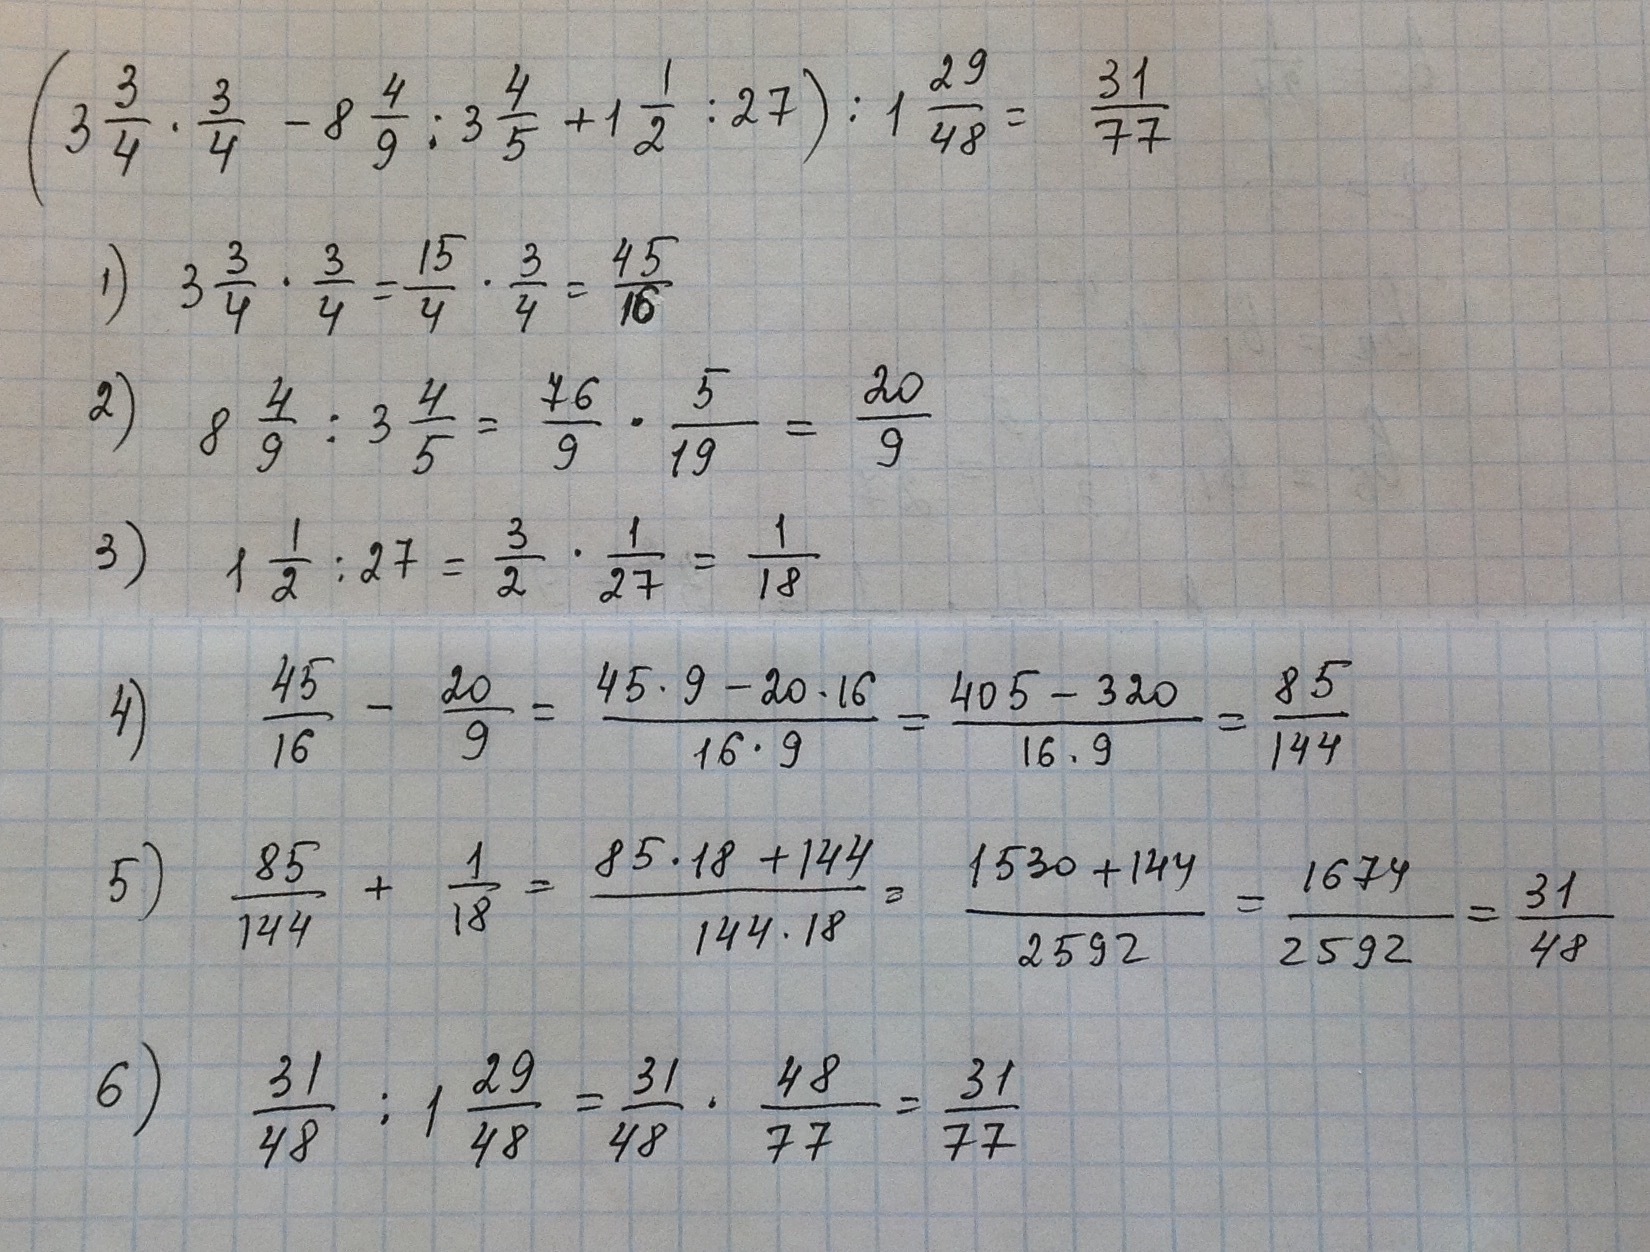 (3 3/4 · 3/4 - 8 4/9 : 3 4/5 + 1 1/2 : 27) : 1 29/48 = 31/77
1) 3 3/4 · 3/4 = 15/4 · 3/4 = 45/16
2) 8 4/9 : 3 4/5 = 76/9 · 5/19 = 20/9
3) 1 1/2 : 27 = 3/2 · 1/27 = 1/18
4) 45/16 - 20/9 = (45·9-20·16)/(16·9) = (405-320)/(16·9) = 85/144
5) 85/144 + 1/18 = (85·18+144)/(144·18) = (1530+144)/2592 = 1674/2592 = 31/48
6) 31/48 : 1 29/48 = 31/48 · 48/77 = 31/77